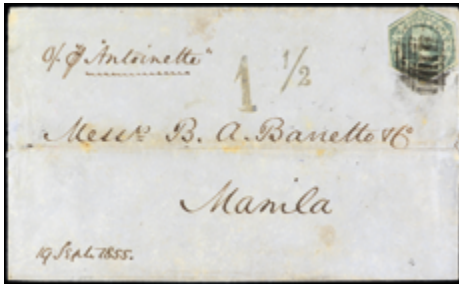 "Antoinette"
1 1/2
Messrs B. A. Barretto & Co
Manila
19 Sept. 1855.